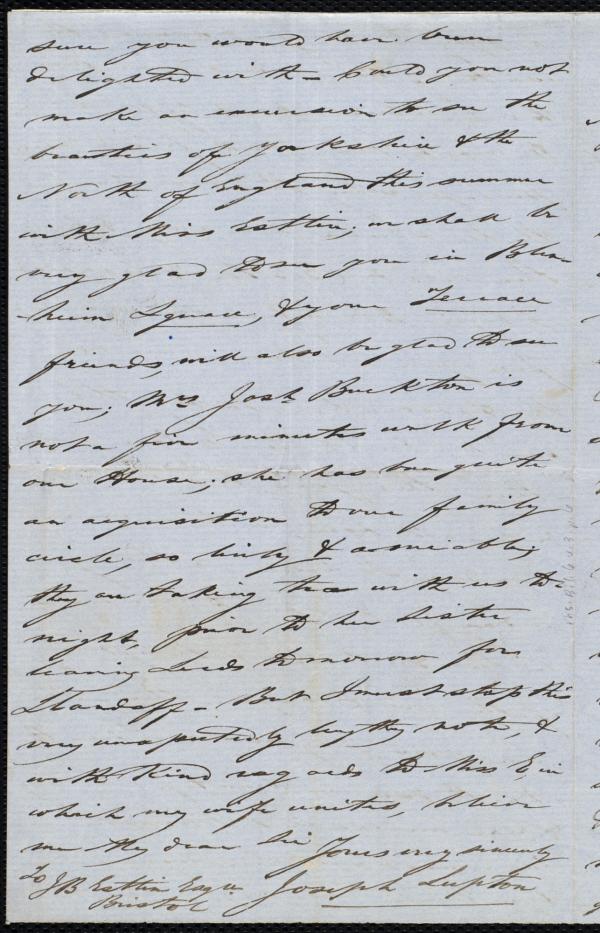 sure you would have been
delighted with - Could you not
make an excursion to see the
beauties of Yorkshire & the
North of England this summer
with Miss Estlin; we shall be
very glad to see you in Blen-
-heim Square, & your Terrace
friends, will also be glad to see
you; Mrs Josh. Buckton is
not a five minutes walk from
our House; she has been quite
an acquisition to our family
circle, so lively & amiable;
they are taking tea with us to-
night, prior to her sister
leaving Leeds tomorrow for
Llandaff - But I must stop this
very unexpectedly lengthy note, &
with kind regards to Miss E in
which my wife unites, believe
me my dear Sir Yours very sincerely
Joseph Lupton
To JB Estlin Esqre.
Bristol